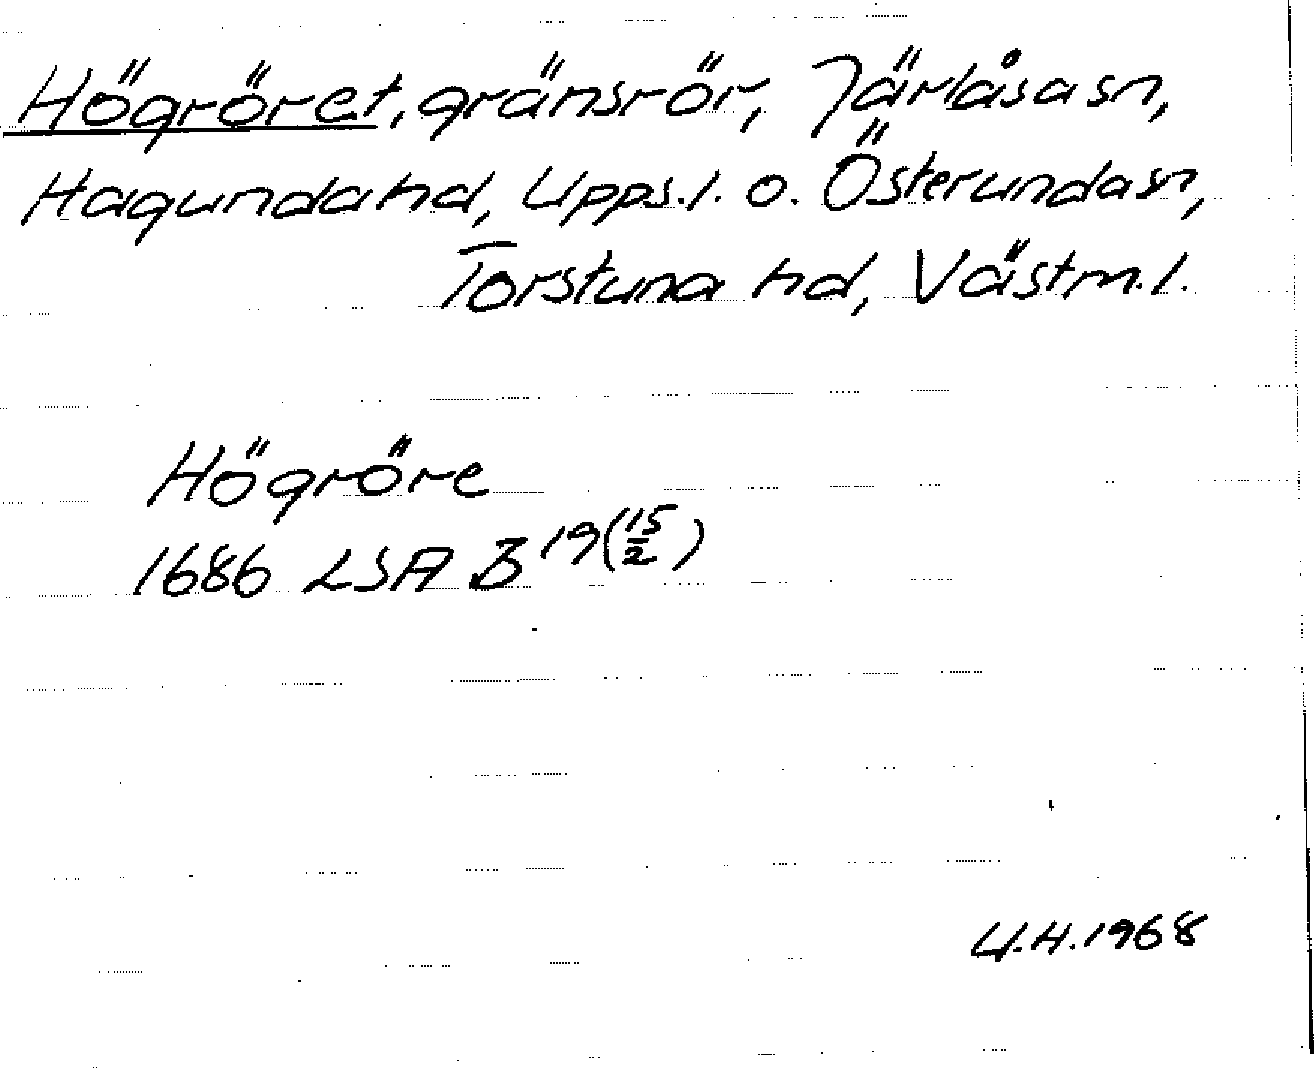 Högröret, gränsrör, Järlåsa sn,
Hagunda hd, Upps.l. o. Österunda sn,
Torstuna hd, Västm.l.
Högröre
1686 LSA B 19(15/2)
U.H. 1968